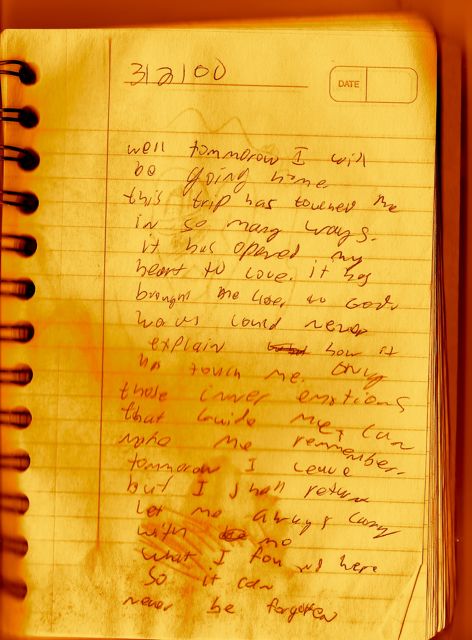 3/2/00
DATE
well tommorow I will
be going home
this trip has touched me
in so many ways.
it has opened my
heart to love. it has
brought me closer to God.
words could never
explain how it
has touch me. only
those inner emotions
that guide me, can
make me remember.
tommorow I leave
but I shall return
let me always carry
with me
what I found here
so it can
never be forgotten